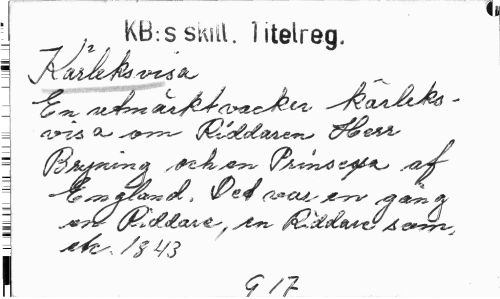 KB:s skill. Titelreg.
Kärleksvisa
En utmärkt vacker kärleks-
visa om Riddaren Herr
Bryning och en Prinsessa af
England. Det var en gång
en Riddare, en Riddare som,
etc. 1843
G 17